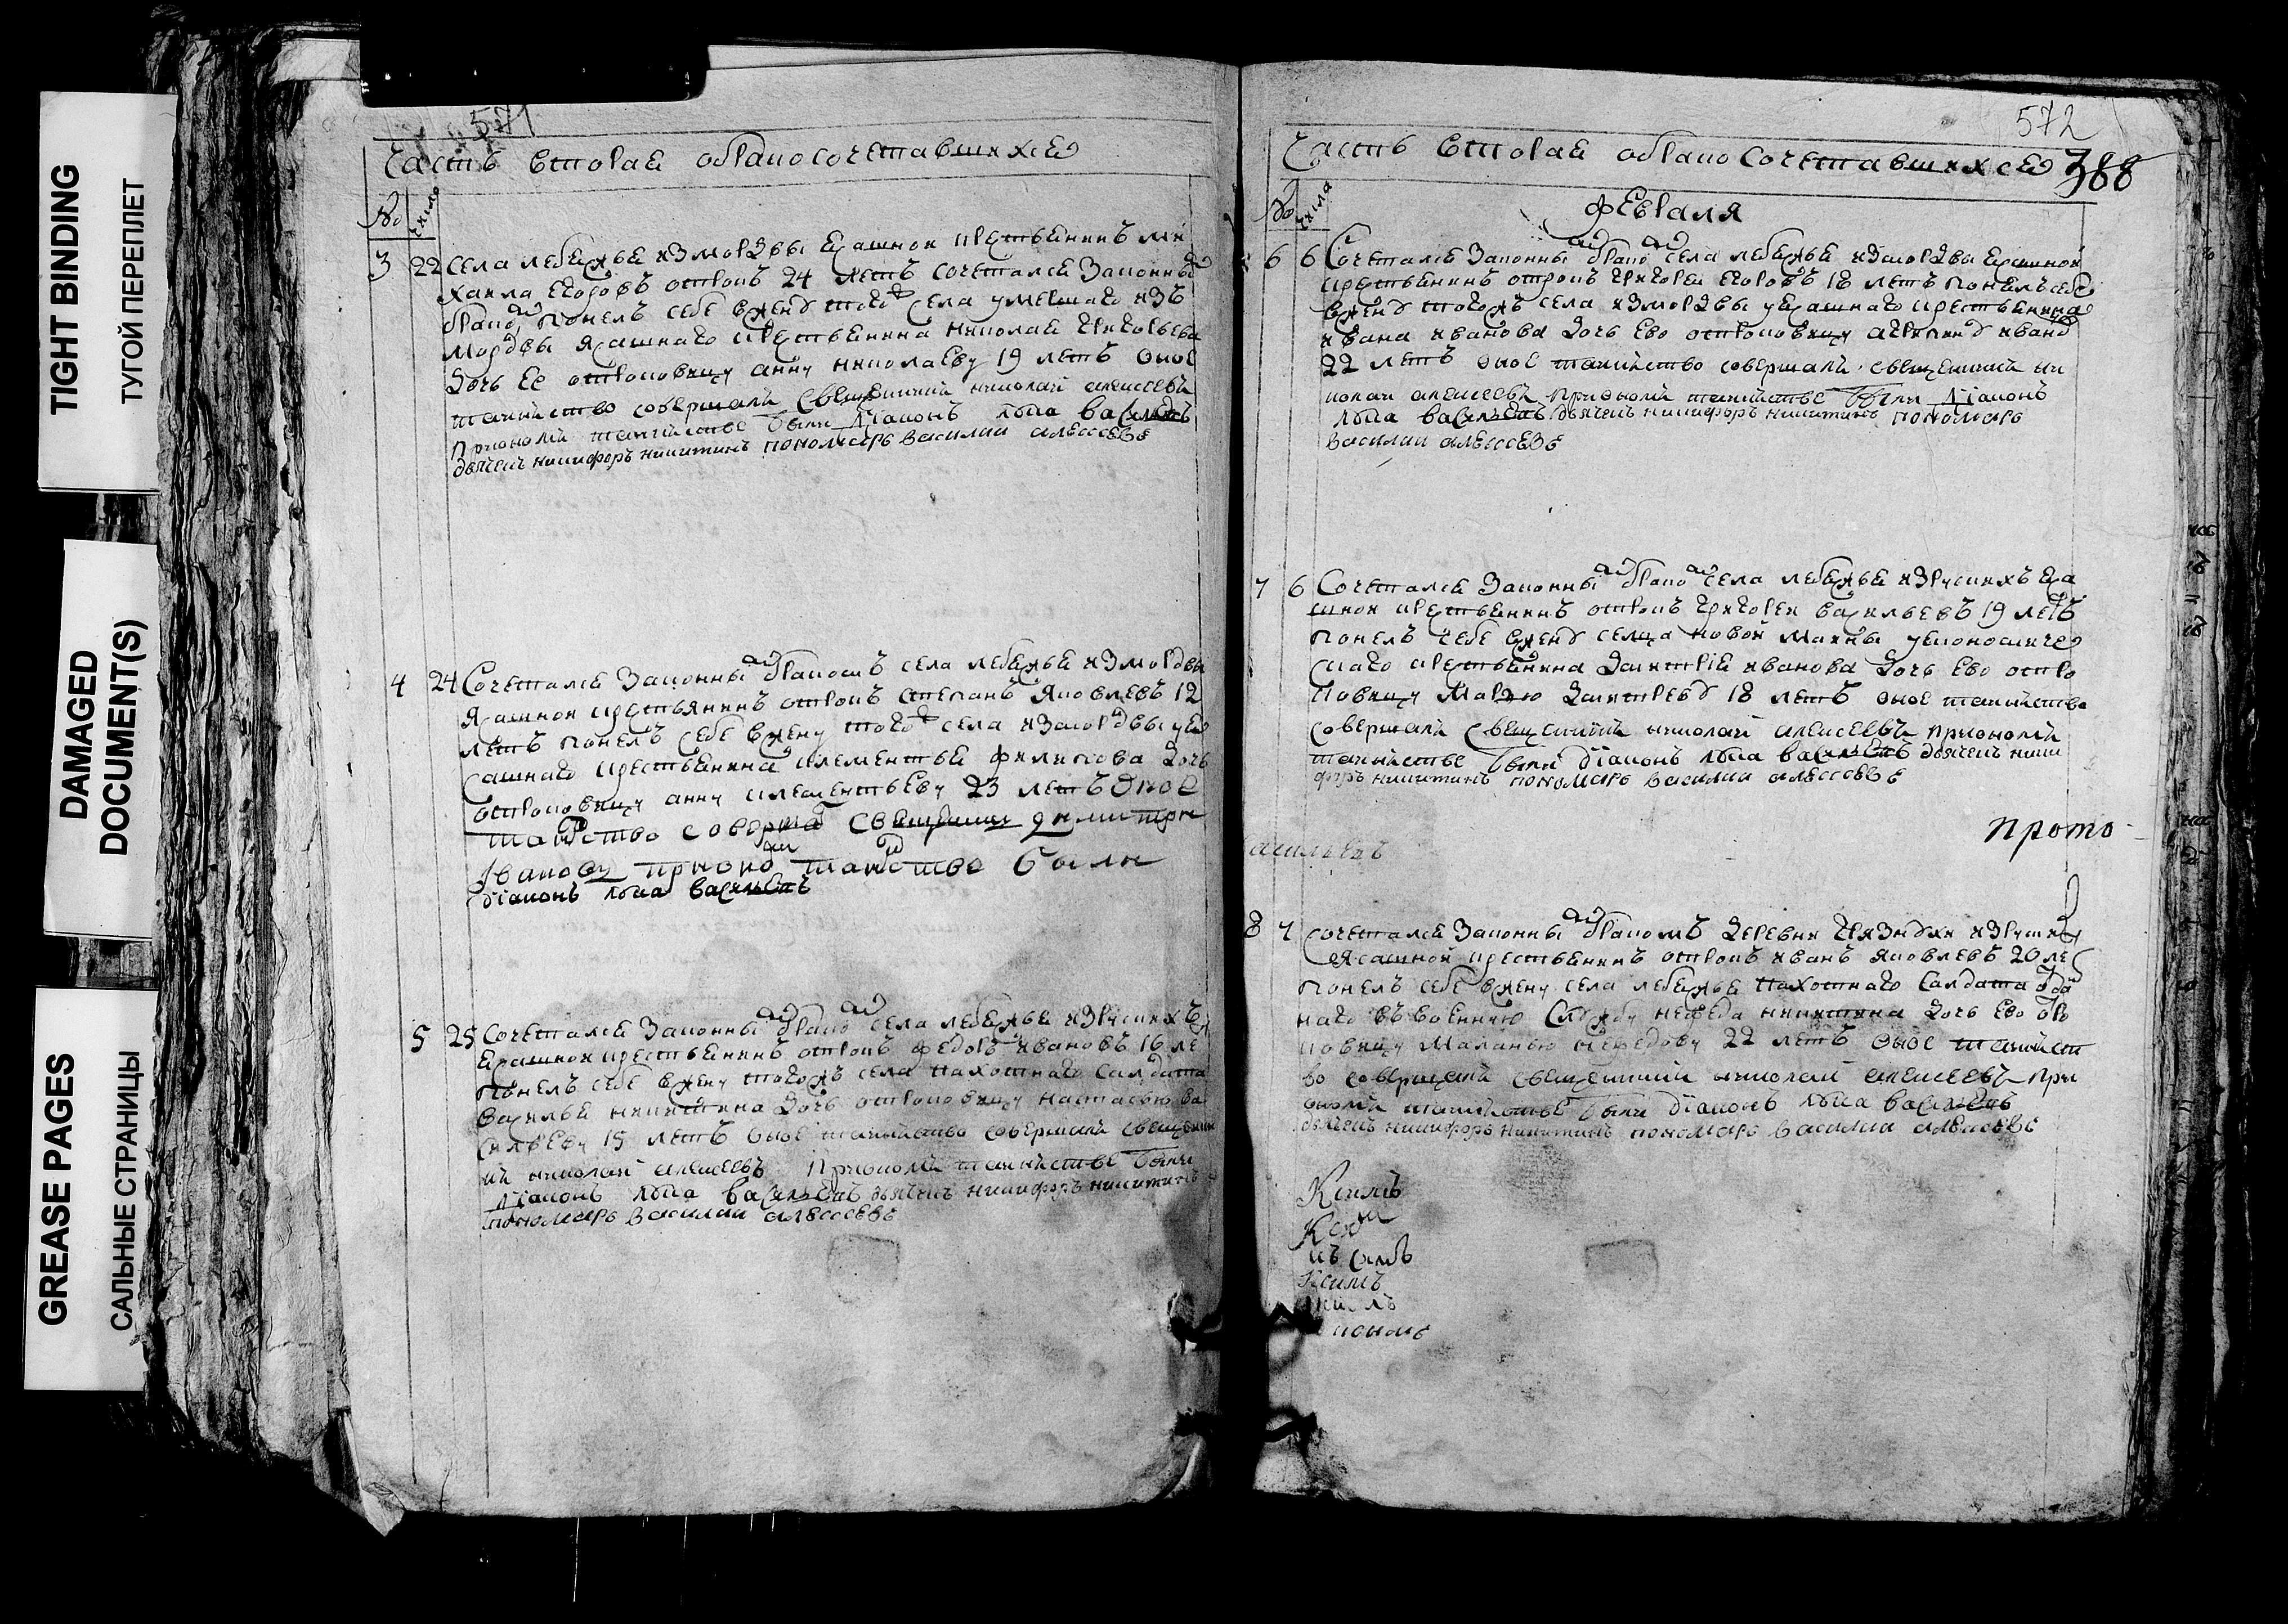 TIGHT BINDING
ТУГОЙ ПЕРЕПЛЕТ
DAMAGED
DOCUMENT(S)
GREASE PAGES
САЛЬНЫЕ СТРАНИЦЫ
571
Часть вторая обрако сочетавшихся
№ числа
3 22 села лебяжья измордвы ясашной крестьянинъ ми
хаила егоровъ отрокъ 24 летъ сочетался законны
брако понелъ себе вжену того села умершаго изъ
мордвы ясашнаго крестьянина николая григорьева
дочь ее отроковицу анну николаеву 19 летъ оное
таинство совершали священникъ николай алексеевъ
приономъ таинстве были діаконъ лука васильевъ
дьячекъ никифоръ никитинъ пономарь василии алексеевъ
4 24 Сочетался законны бракомъ села лебяжья измордвы
ясашной крестьянинъ отрокъ степанъ яковлевъ 12
летъ понелъ себе вжену того села измордвы уя
сашнаго крестьянина клементья филипова дочь
отроковицу анну клементьеву 23 летъ оное
таинство соверша священникъ димитри
Івановъ приономъ таинство были
діаконъ лука васильевъ
5 25 Сочетался законны брако села лебяжья изрускихъ
ясашной крестьянинъ отрокъ федоръ ивановъ 16 ле
понелъ себе вжену тогожъ села пахотнаго салдата
василья никитина дочь отроковицу настасью ва
сильеву 15 летъ оное таинство совершали священни
къ николай алексеевъ приономъ таинстве были
діаконъ лука васильевъ дьячекъ никифоръ никитинъ
пономарь василии алексеевъ
572
Часть вторая обрако сочетавшихся 388
№ числа
февраля
6 6 Сочетался законны брако села лебяжья измордвы ясашной
крестьянинъ отрокъ григорей егоровъ 18 летъ понелъ себе
вжену тогожъ села измордвы уясашнаго крестьянина
ивана иванова дочь ево отроковицу агрипену ивано
22 летъ оное таинство совершали священникъ ни
колай алексеевъ приономъ таинстве были діаконъ
лука васильевъ дьячекъ никифоръ никитинъ пономарь
василии алексеевъ
7 6 Сочетался законны брако села лебяжья изрускихъ яса
шной крестьянинъ отрокъ григорей васильевъ 19 летъ
понелъ себе вжену сельца новой маины уекономиче
скаго крестьянина дмитрія иванова дочь ево отро
ковицу марью дмитреву 18 летъ оное таинство
совершали священникъ николай алексеевъ приономъ
таинстве были діаконъ лука васильевъ дьячекъ ники
форъ никитинъ пономарь василии алексеевъ
прото
8 7 сочетался законны бракомъ деревни грязнухи изруски
ясашной крестьянинъ отрокъ иванъ яковлевъ 20 ле
понелъ себе вжену села лебяжья пахотнаго салдата
наго въ военную службу нефеда никитина дочь ево отро
ковицу маланью нефедову 22 летъ оное таинст
во совершали священникъ николай алексеевъ при
ономъ таинстве были діаконъ лука васильевъ
дьячекъ никифоръ никитинъ пономарь василии алексеевъ